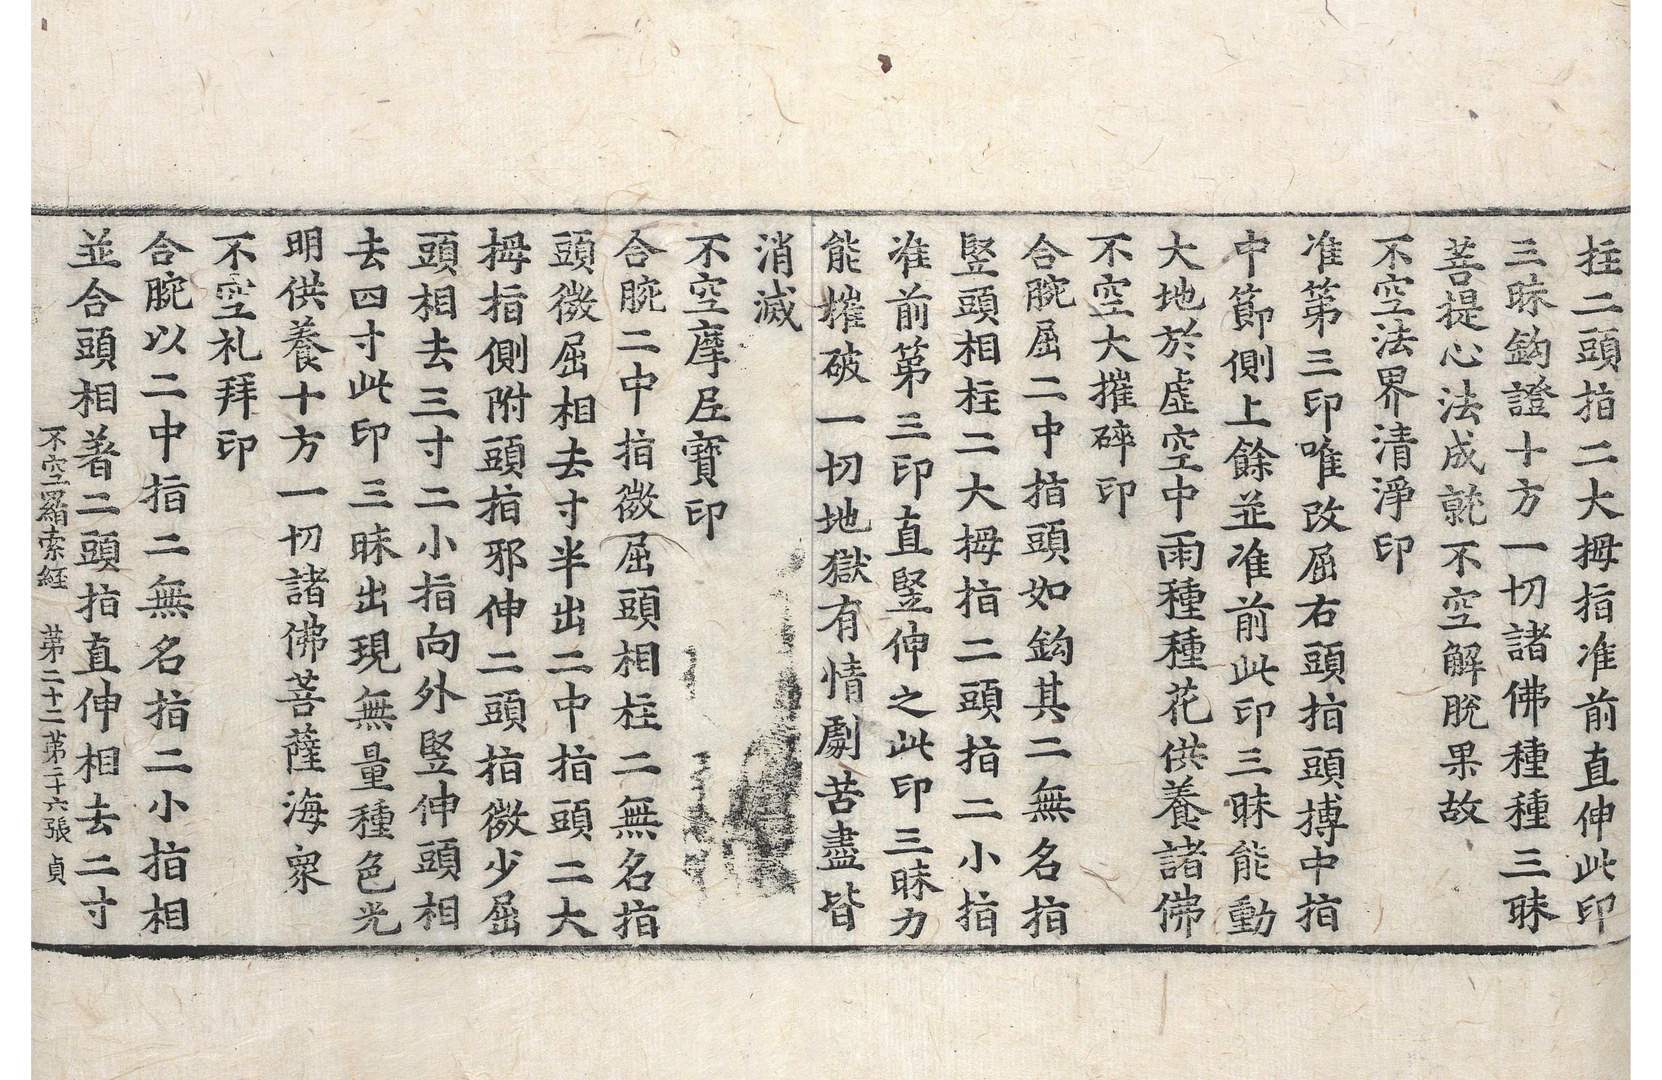 拄二頭指二大拇指准前直伸此印
三昧鈎證十方一切諸佛種種三昧
菩提心法成就不空解脫果故
不空法界清淨印
准第三印唯改屈右頭指頭搏中指
中節側上餘並准前此印三昧能動
大地於虛空中雨種種花供養諸佛
不空大摧碎印
合腕屈二中指頭如鈎其二無名指
竪頭相柱二大拇指二頭指二小指
准前第三印直竪伸之此印三昧力
能摧破一切地獄有情劇苦盡皆
消滅
不空摩尼寶印
合腕二中指微屈頭相柱二無名指
頭微屈相去寸半出二中指頭二大
拇指側附頭指邪伸二頭指微少屈
頭相去三寸二小指向外竪伸頭相
去四寸此印三昧出現無量種色光
明供養十方一切諸佛菩薩海衆
不空礼拜印
合腕以二中指二無名指二小指相
並合頭相著二頭指直伸相去二寸
不空羂索經 第二十二 第二十六張 貞